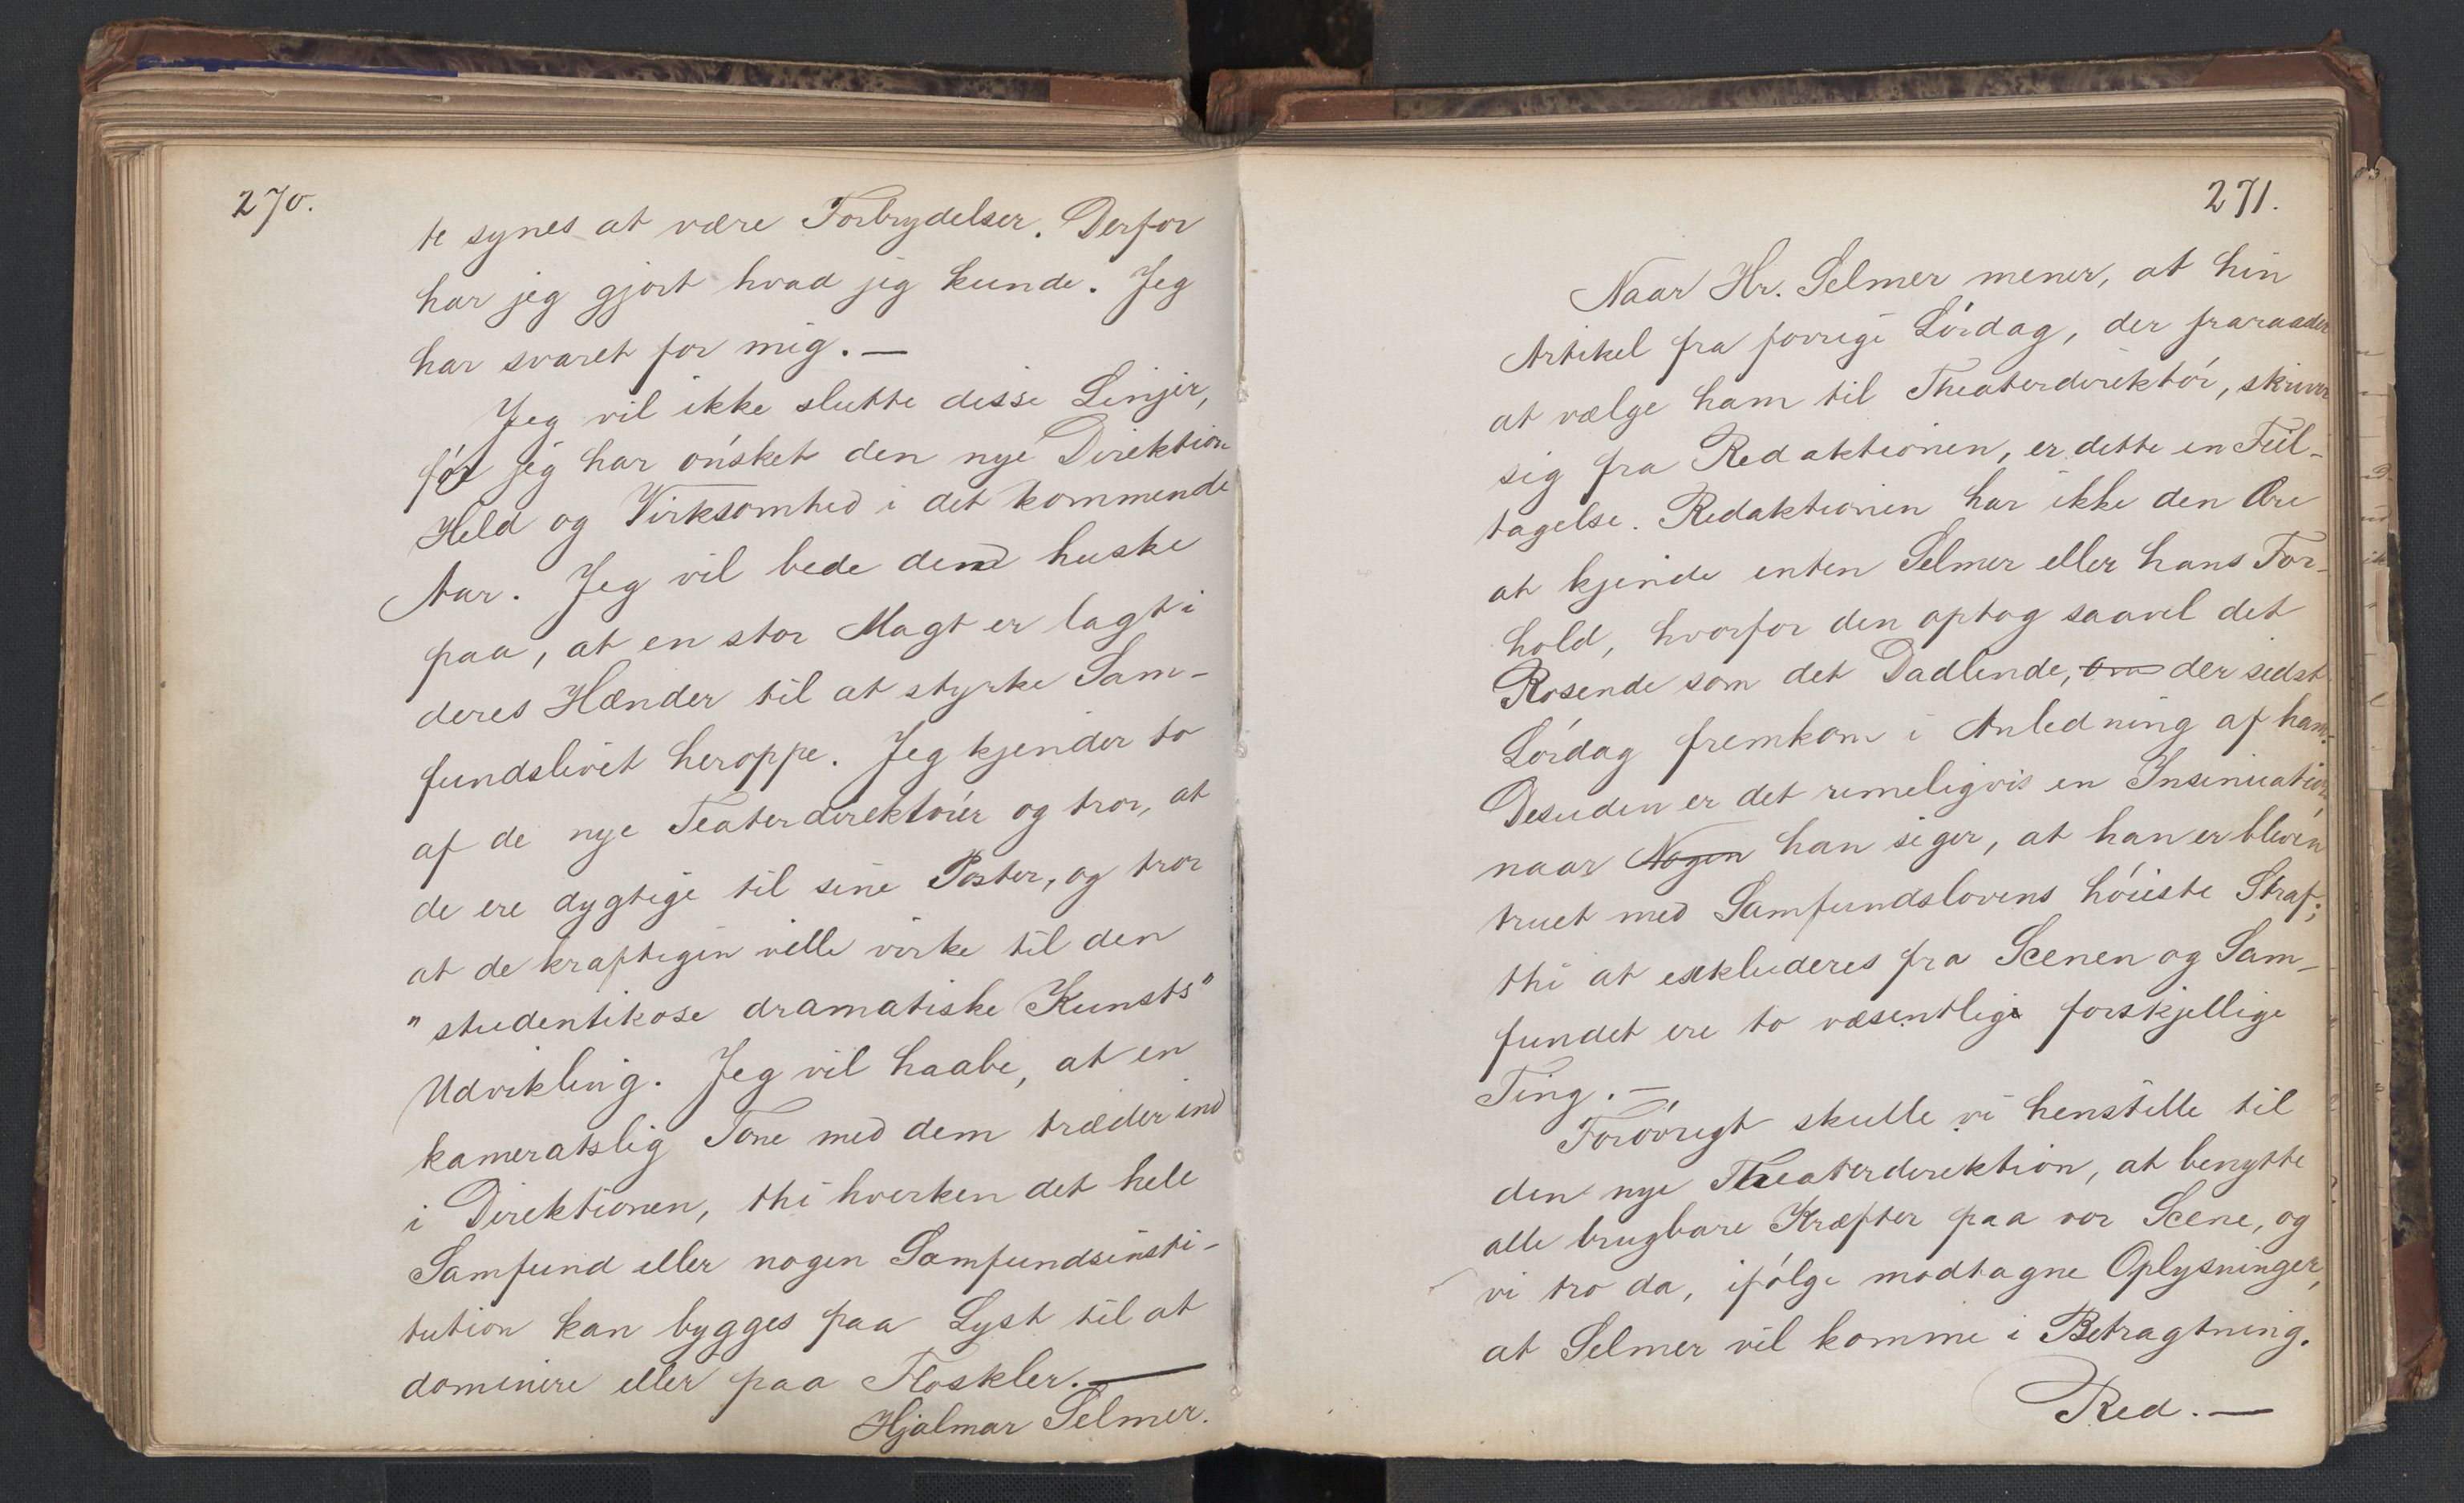 270.
te synes at være Forbrydelser. Derfor
har jeg gjort hvad jeg kunde. Jeg
har svaret for mig. —
Jeg vil ikke slutte disse Linjer,
før jeg har ønsket den nye Direktion
Held og Virksomhed i det kommende
Aar. Jeg vil bede dem huske
paa, at en stor Magt er lagt i
deres Hænder til at styrke Sam-
fundslivet heroppe. Jeg kjender to
af de nye Teaterdirektøier og tror, at
de ere dygtige til sine Poster, og tror
at de kraftigen ville virke til den
"studentikose dramatiske Kunsts"
Udvikling. Jeg vil haabe, at en
kameratslig Tone med dem træder ind
i Direktionen, thi hverken det hele
Samfund eller nogen Samfundsinsti-
tution kan bygges paa Lyst til at
dominere eller paa Floskler. —
Hjalmar Selmer.
271.
Naar Hr. Selmer mener, at hin
Artikel fra forrige Lørdag, der fraraader
at vælge ham til Theaterdirektør, skriver
sig fra Redaktionen, er dette en Feil-
tagelse. Redaktionen har ikke den Ære
at kjende enten Selmer eller hans For-
hold, hvorfor den optog saavel det
Rosende som det Dadlende, om der sidst
Lørdag fremkom i Anledning af ham.
Desuden er det rimeligvis en Insinuation,
naar Nogen han siger, at han er bleven
truet med Samfundslovens høieste Straf;
thi at exkluderes fra Scenen og Sam-
fundet ere to væsentlige forskjellige
Ting. —
Forøvrigt skulle vi henstille til
den nye Theaterdirektion, at benytte
alle brugbare Kræfter paa vor Scene, og
vi tro da, ifølge modtagne Oplysninger,
at Selmer vil komme i Betragtning.
Red. —